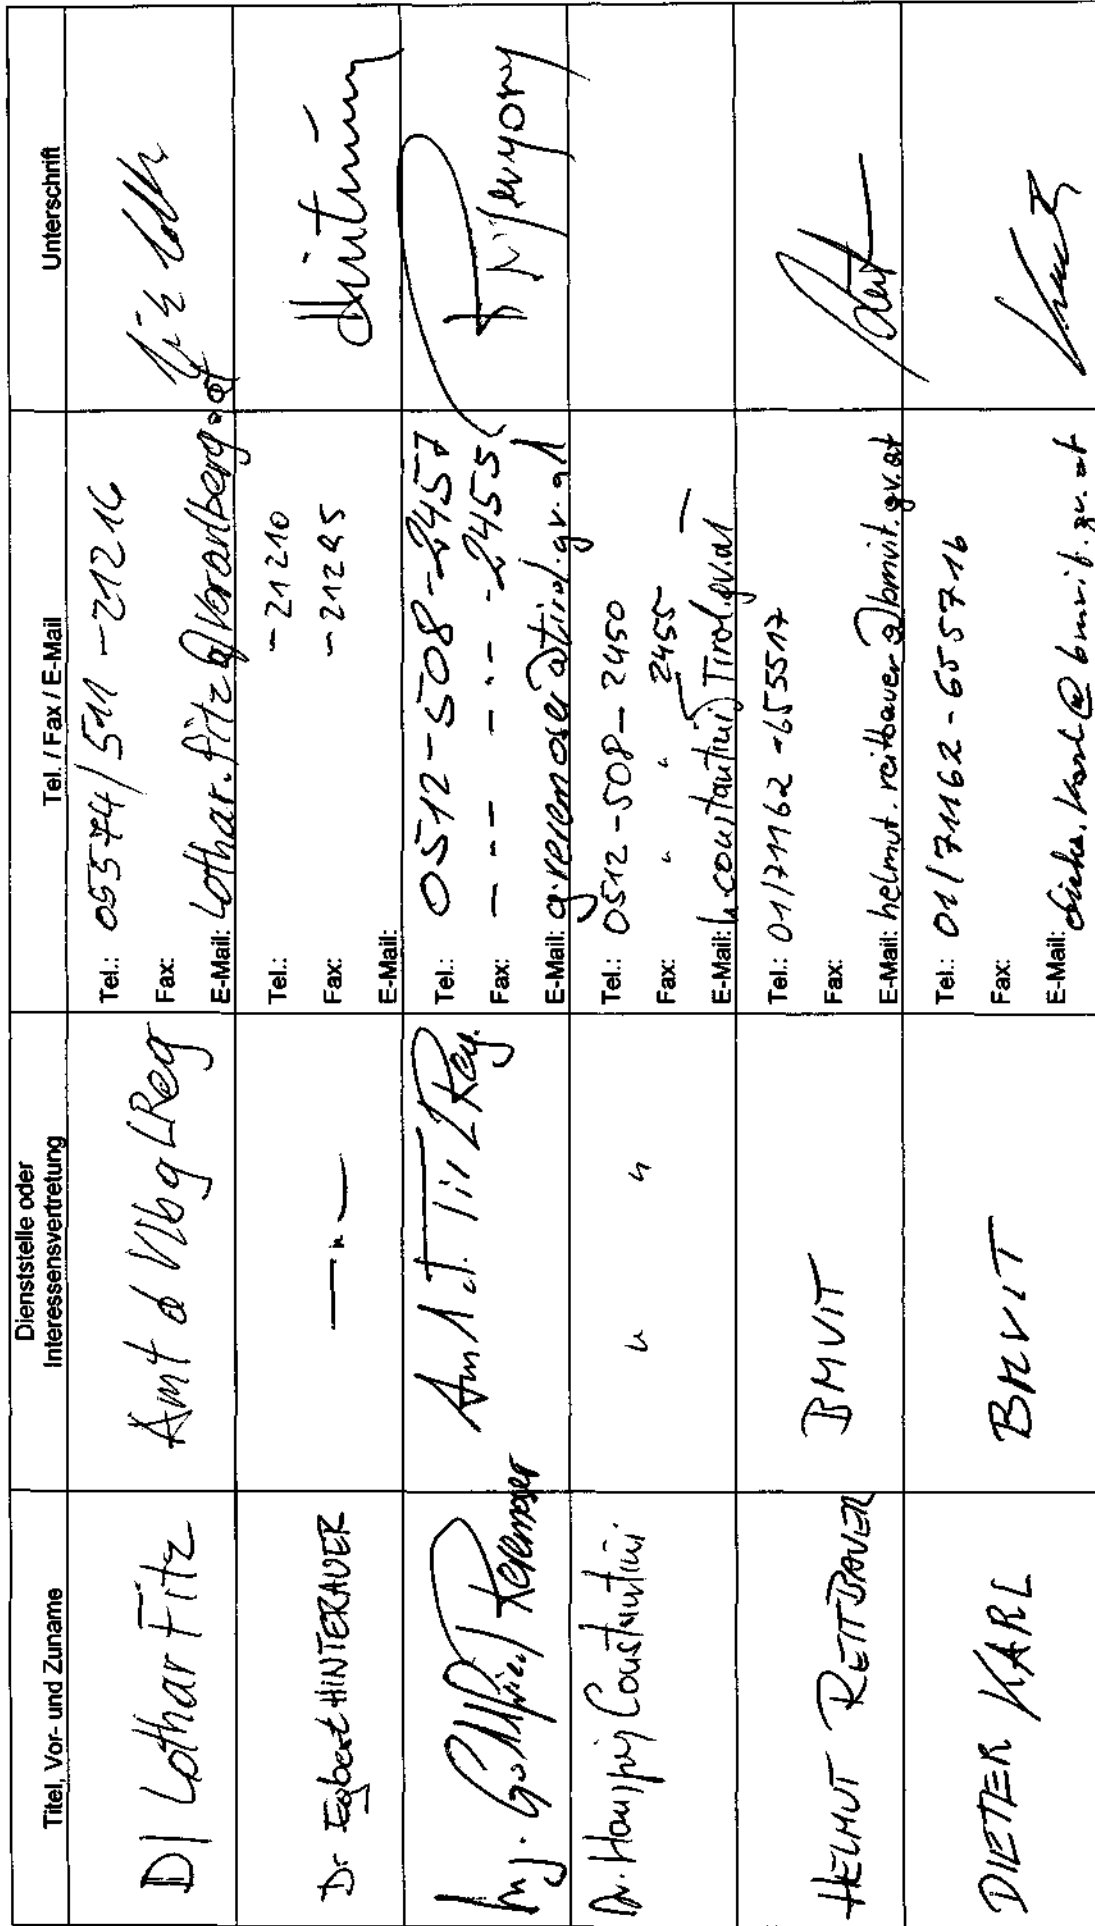 Titel, Vor- und Zuname
Dienststelle oder
Interessensvertretung
Tel. / Fax / E-Mail
Unterschrift
DI Lothar Fitz
Amt d Vlbg LReg
Tel.: 05574/511-21216
Fax:
E-Mail: Lothar.fitz@Vorarlberg.at
Dr Egbert HINTERAUER
—"—
Tel.: -21210
Fax: -21295
E-Mail:
Ing. Gottfried
Amt d. Tir LReg.
Tel.: 0512-508-2457
Fax: - - - - - - - 2455
E-Mail:
Dr. Constantini
" "
Tel.: 0512-508-2450
Fax: " " 2455
E-Mail: h.constantini Tirol.gv.at
HELMUT REITBAUER
BMVIT
Tel.: 01/71162-655517
Fax:
E-Mail: helmut.reitbauer@bmvit.gv.at
DIETER KARL
BMVIT
Tel.: 01/71162-655716
Fax:
E-Mail: dieter.karl@bmvit.gv.at